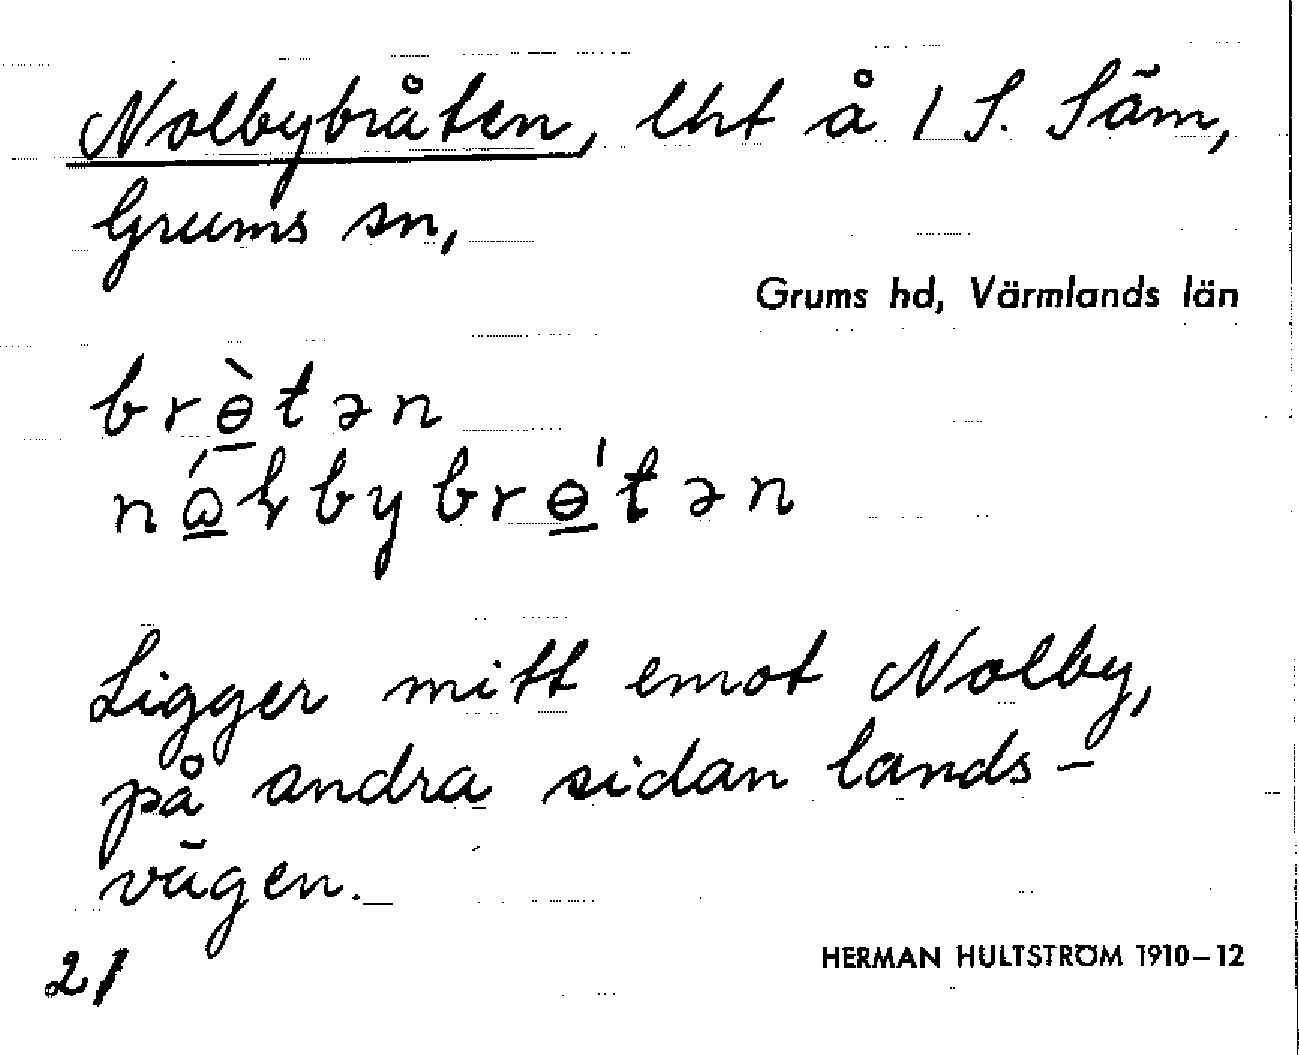 Nolbybråten, lht å 1 S. Säm,
Grums sn,
Grums hd, Värmlands län
brɵ̠̀tən
Ligger mitt emot Nolby,
på andra sidan lands-
vägen.
21
HERMAN HULTSTRÖM 1910–12